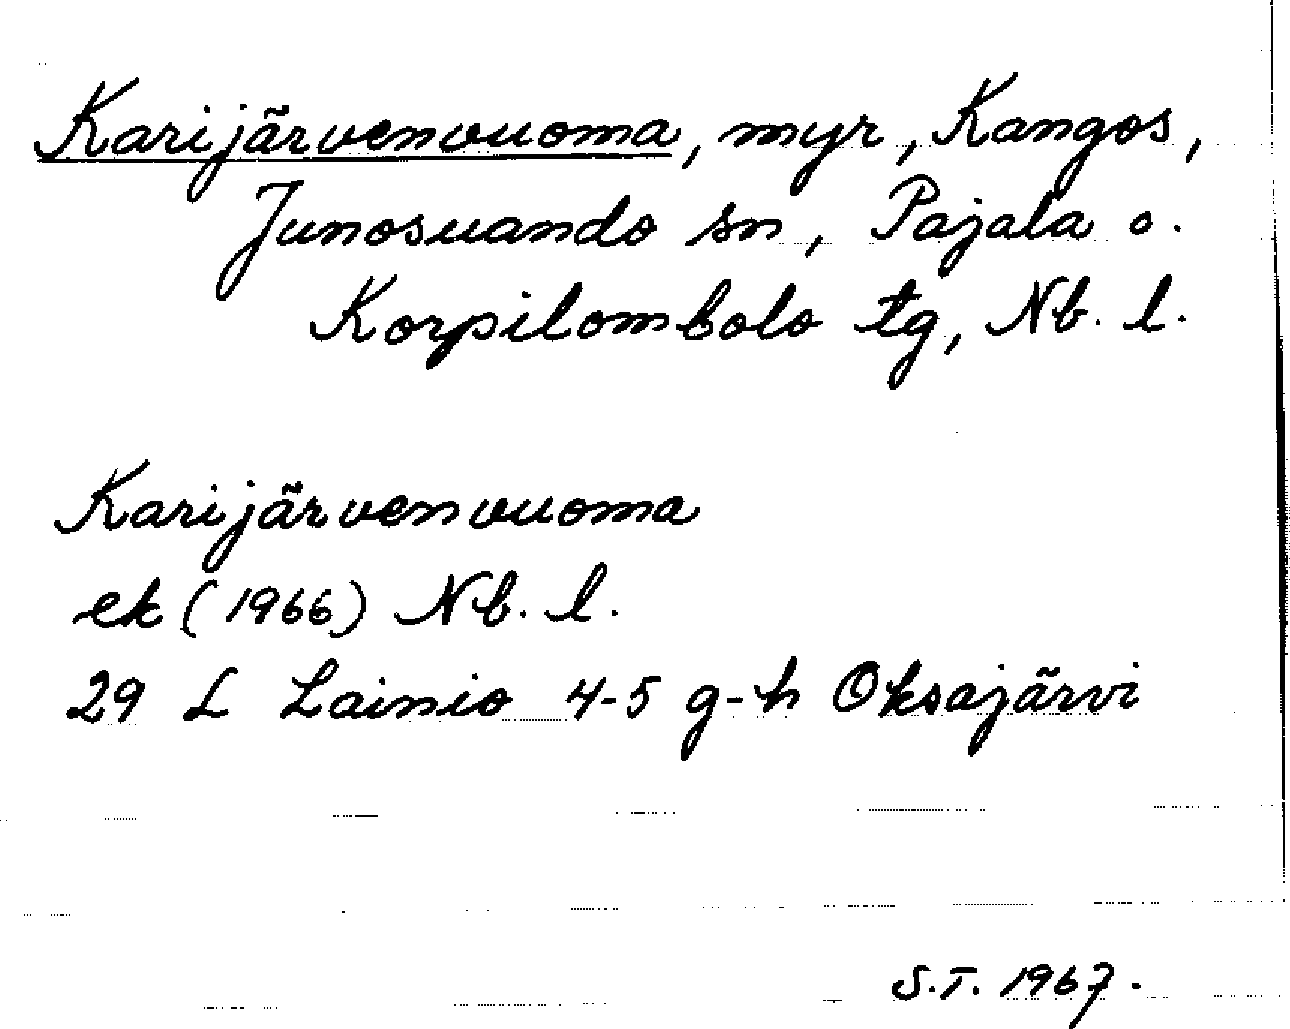 Karijärvenvuoma, myr, Kangos,
Junosuando sn, Pajala o.
Korpilombolo tg, Nb. l.
Karijärvenvuoma
ek (1966) Nb. l.
29 L Lainio 4-5 g-h Oksajärvi
S.T. 1967.